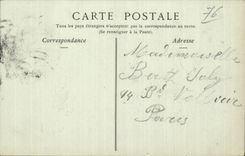 76
CARTE POSTALE
Tous les pays étrangers n'acceptent pas la correspondance au verso.
(Se renseigner à la Poste).
Correspondance
Adresse
Mademoiselle
14 Bd
Paris